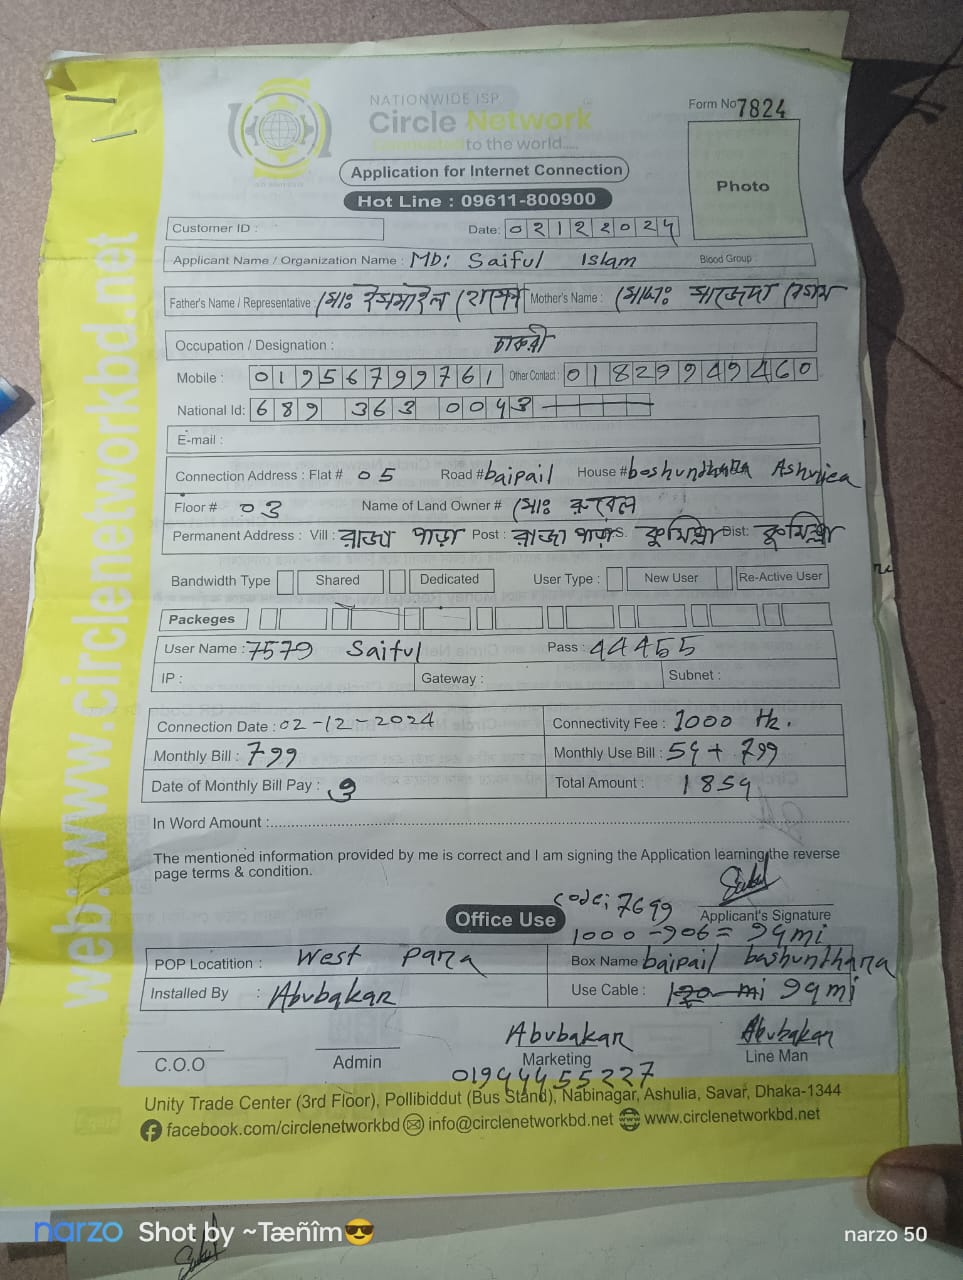 NATIONWIDE ISP
Circle Network
Connected to the world....
Form No 7824
Photo
Application for Internet Connection
Hot Line : 09611-800900
Customer ID :
Date: 02122024
Applicant Name / Organization Name : MD: Saiful Islam Blood Group :
Father's Name / Representative : মোঃ ইসমাইল হোসেন Mother's Name : মোছাঃ সাজেদা বেগম
Occupation / Designation : চাকরী
Mobile : 01956799761 Other Contact : 01829949460
National Id: 689 363 0043
E-mail :
Connection Address : Flat # 05 Road # baipail House # boshundhara Ashulica
Floor # 03 Name of Land Owner # মোঃ রুবেল
Permanent Address : Vill : রাজা পাড়া Post : রাজা পাড়া P.S. কুমিল্লা Dist: কুমিল্লা
Bandwidth Type Shared Dedicated User Type : New User Re-Active User
Packeges
User Name : 7579 Saiful Pass : 44455
IP : Gateway : Subnet :
Connection Date : 02-12-2024 Connectivity Fee : 1000
Monthly Bill : 799 Monthly Use Bill : 54 + 799
Date of Monthly Bill Pay : 9 Total Amount : 1854
In Word Amount :
The mentioned information provided by me is correct and I am signing the Application learning the reverse
page terms & condition.
Code; 7699
Office Use Applicant's Signature
1000 - 906 = 94mi
POP Locatition : West Para Box Name baipail bashunthara
Installed By : Abubakar Use Cable : 94mi
Abubakar Abubakar
C.O.O Admin Marketing Line Man
01944455227
Unity Trade Center (3rd Floor), Pollibiddut (Bus Stand), Nabinagar, Ashulia, Savar, Dhaka-1344
facebook.com/circlenetworkbd info@circlenetworkbd.net www.circlenetworkbd.net
web: www.circlenetworkbd.net
narzo Shot by ~Tæñîm😎 narzo 50